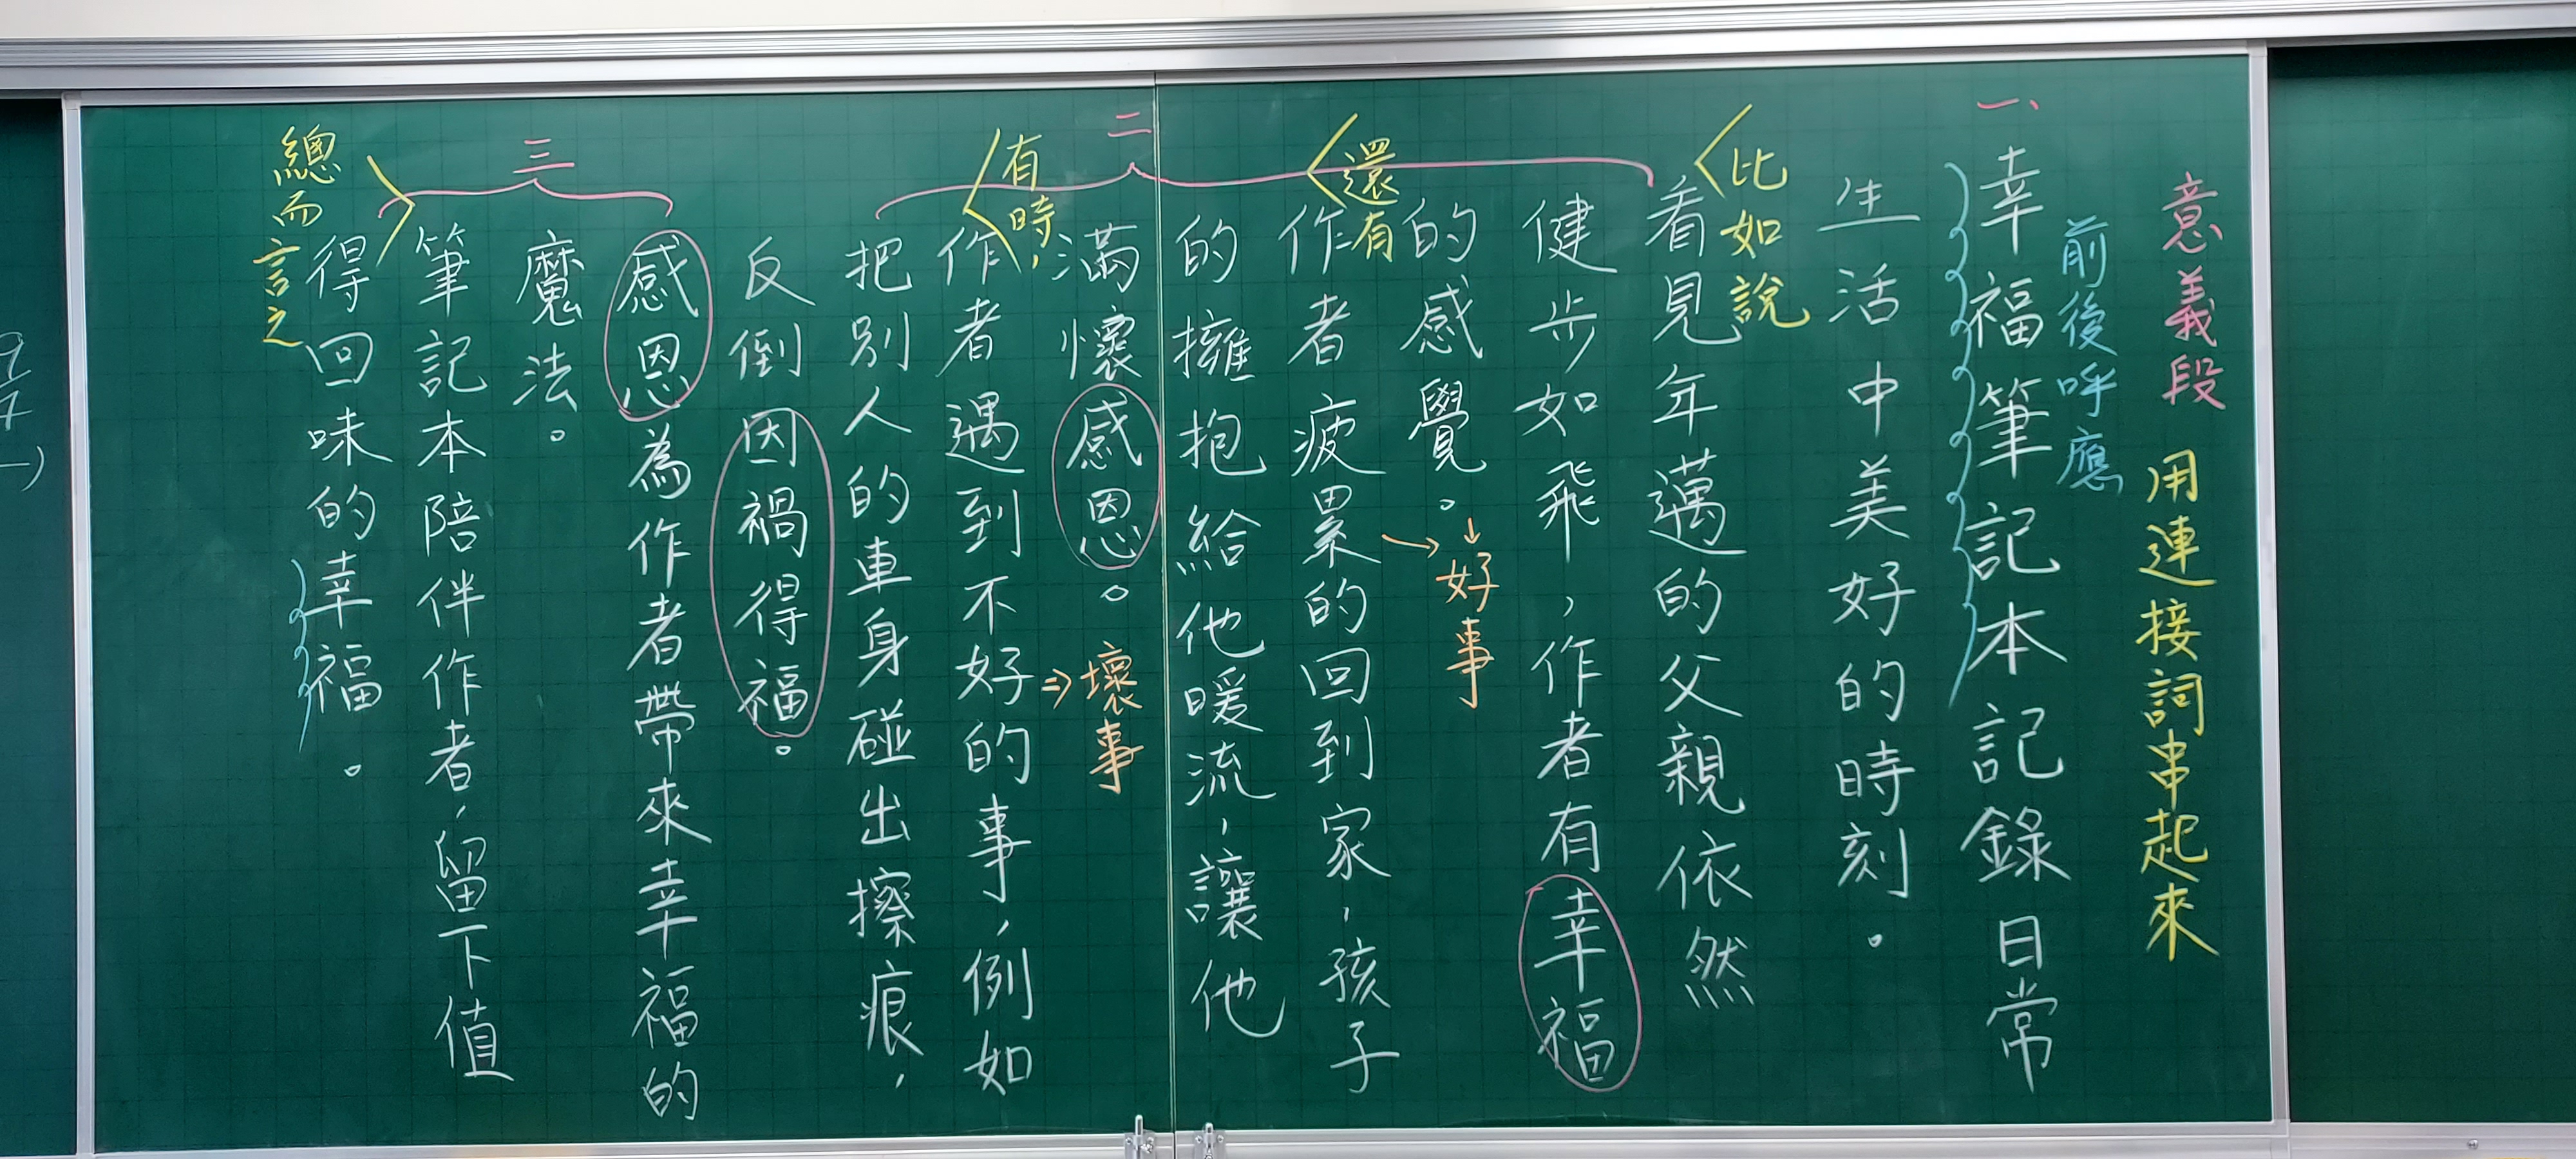 意義段 用連接詞串起來
前後呼應
一、幸福筆記本記錄日常
生活中美好的時刻。
比如說
看見年邁的父親依然
健步如飛，作者有幸福
的感覺。
↓好事
還有
作者疲累的回到家，孩子→
的擁抱給他暖流，讓他
滿懷感恩。
⇒壞事
二
有時，
作者遇到不好的事，例如
把別人的車身碰出擦痕，
反倒因禍得福。
感恩為作者帶來幸福的
魔法。
三
筆記本陪伴作者，留下值
得回味的幸福。
總而言之